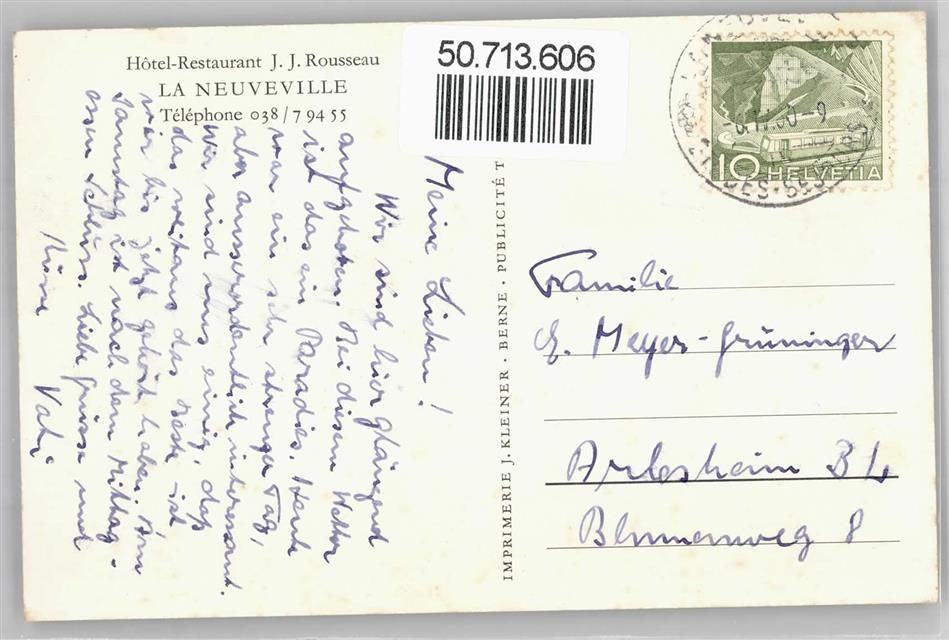 Hôtel-Restaurant J. J. Rousseau
LA NEUVEVILLE
Téléphone 038/7 94 55
50.713.606
10 HELVETIA
Meine Lieben!
Wir sind hier glänzend
aufgehoben. Bei diesem Wetter
ist das ein Paradies. Heute
war ein sehr strenger Tag,
aber ausserordentlich interessant.
Wir sind uns einig, daß
das weitaus das Beste ist
wir bis jetzt gehört haben. Am
Samstag ist nach dem Mittag-
essen Schluss. Liebe Grüsse und
Küsse Vati
IMPRIMERIE J. KLEINER · BERNE · PUBLICITÉ T
Familie
E. Meyer-Grüninger
Arlesheim BL
Blumenweg 8